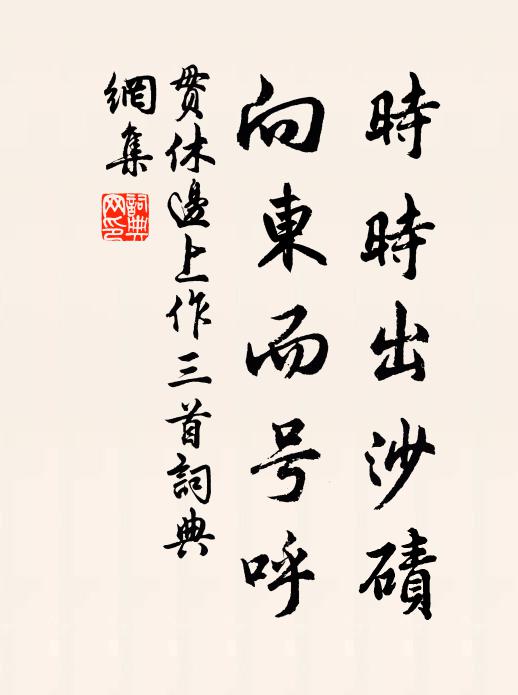 時時出沙磧
向東而号呼
貫休邊上作三首詞典
網集
詞典
网印